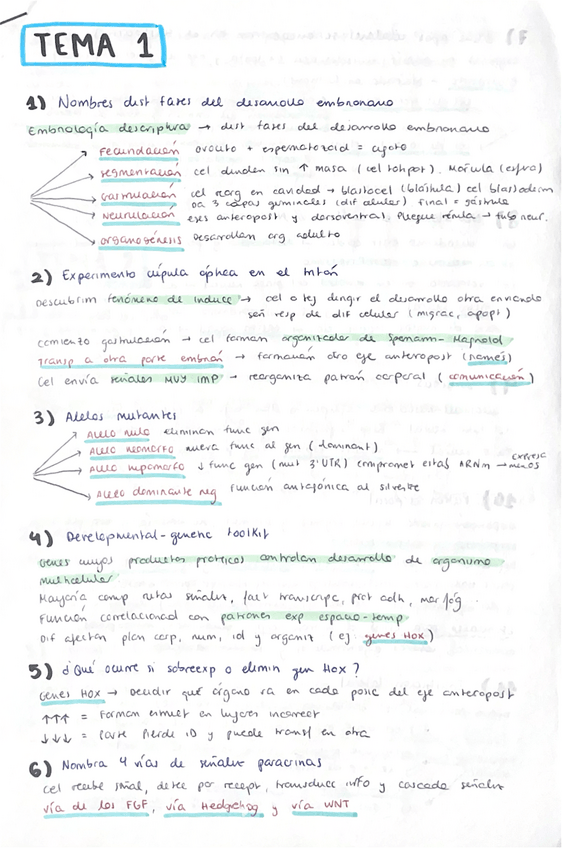 TEMA 1
1) Nombres dist fases del desarrollo embrionario
Embriología descriptiva → dist fases del desarrollo embrionario
Fecundación ovocito + espermatozoid = cigoto
segmentación cel dividen sin ↑ masa (cel totipot). Mórula (esfera)
Gastrulación cel reorg en cavidad → blastocel (blástula) cel blastoderm
da 3 capas germinales (dif celular) final = gástrula
Neurulación ejes anteropost y dorsoventral. Pliegue → tubo neur.
organogénesis Desarrollan org adulto
2) Experimento cúpula óptica en el tritón
Descubrim fenómeno de inducc → cel o tej dirigir el desarrollo otra enviando
señ resp de dif celular (migrac, apopt)
comienzo gastrulación → cel forman organizador de Spemann-Mangold
Transp a otra parte embrión → formación otro eje anteropost (
Cel envía señales MUY IMP → reorganiza patrón corporal (comunicación)
3) Alelos mutantes
Alelo nulo eliminan func gen
Alelo neomorfo nueva func al gen (dominant)
Alelo hipomorfo ↓ func gen (mut 3'UTR) compromet estab ARNm → expresa
menos
Alelo dominante neg función antagónica al silvestre
4) Developmental-genetic toolkit
Genes cuyos productos proteicos controlan desarrollo de organismo
multicelular
Mayoría comp rutas señaliz, fact transcripc, prot adh, morfóg.
Función correlacional con patrones exp espacio-temp
Dif afectan plan corp, num, id y organiz (ej genes HOX)
5) ¿Qué ocurre si sobreexp o elimin gen Hox?
Genes HOX → Decidir qué órgano va en cada posic del eje anteropost
↑↑↑ = Forman estruct en lugares incorrect
↓↓↓ = Parte pierde ID y puede transf en otra
6) Nombra 4 vías de señaliz paracrinas
cel recibe señal, detec por recept, transduce info y cascada señaliz
vía de los FGF, vía Hedgehog y vía WNT